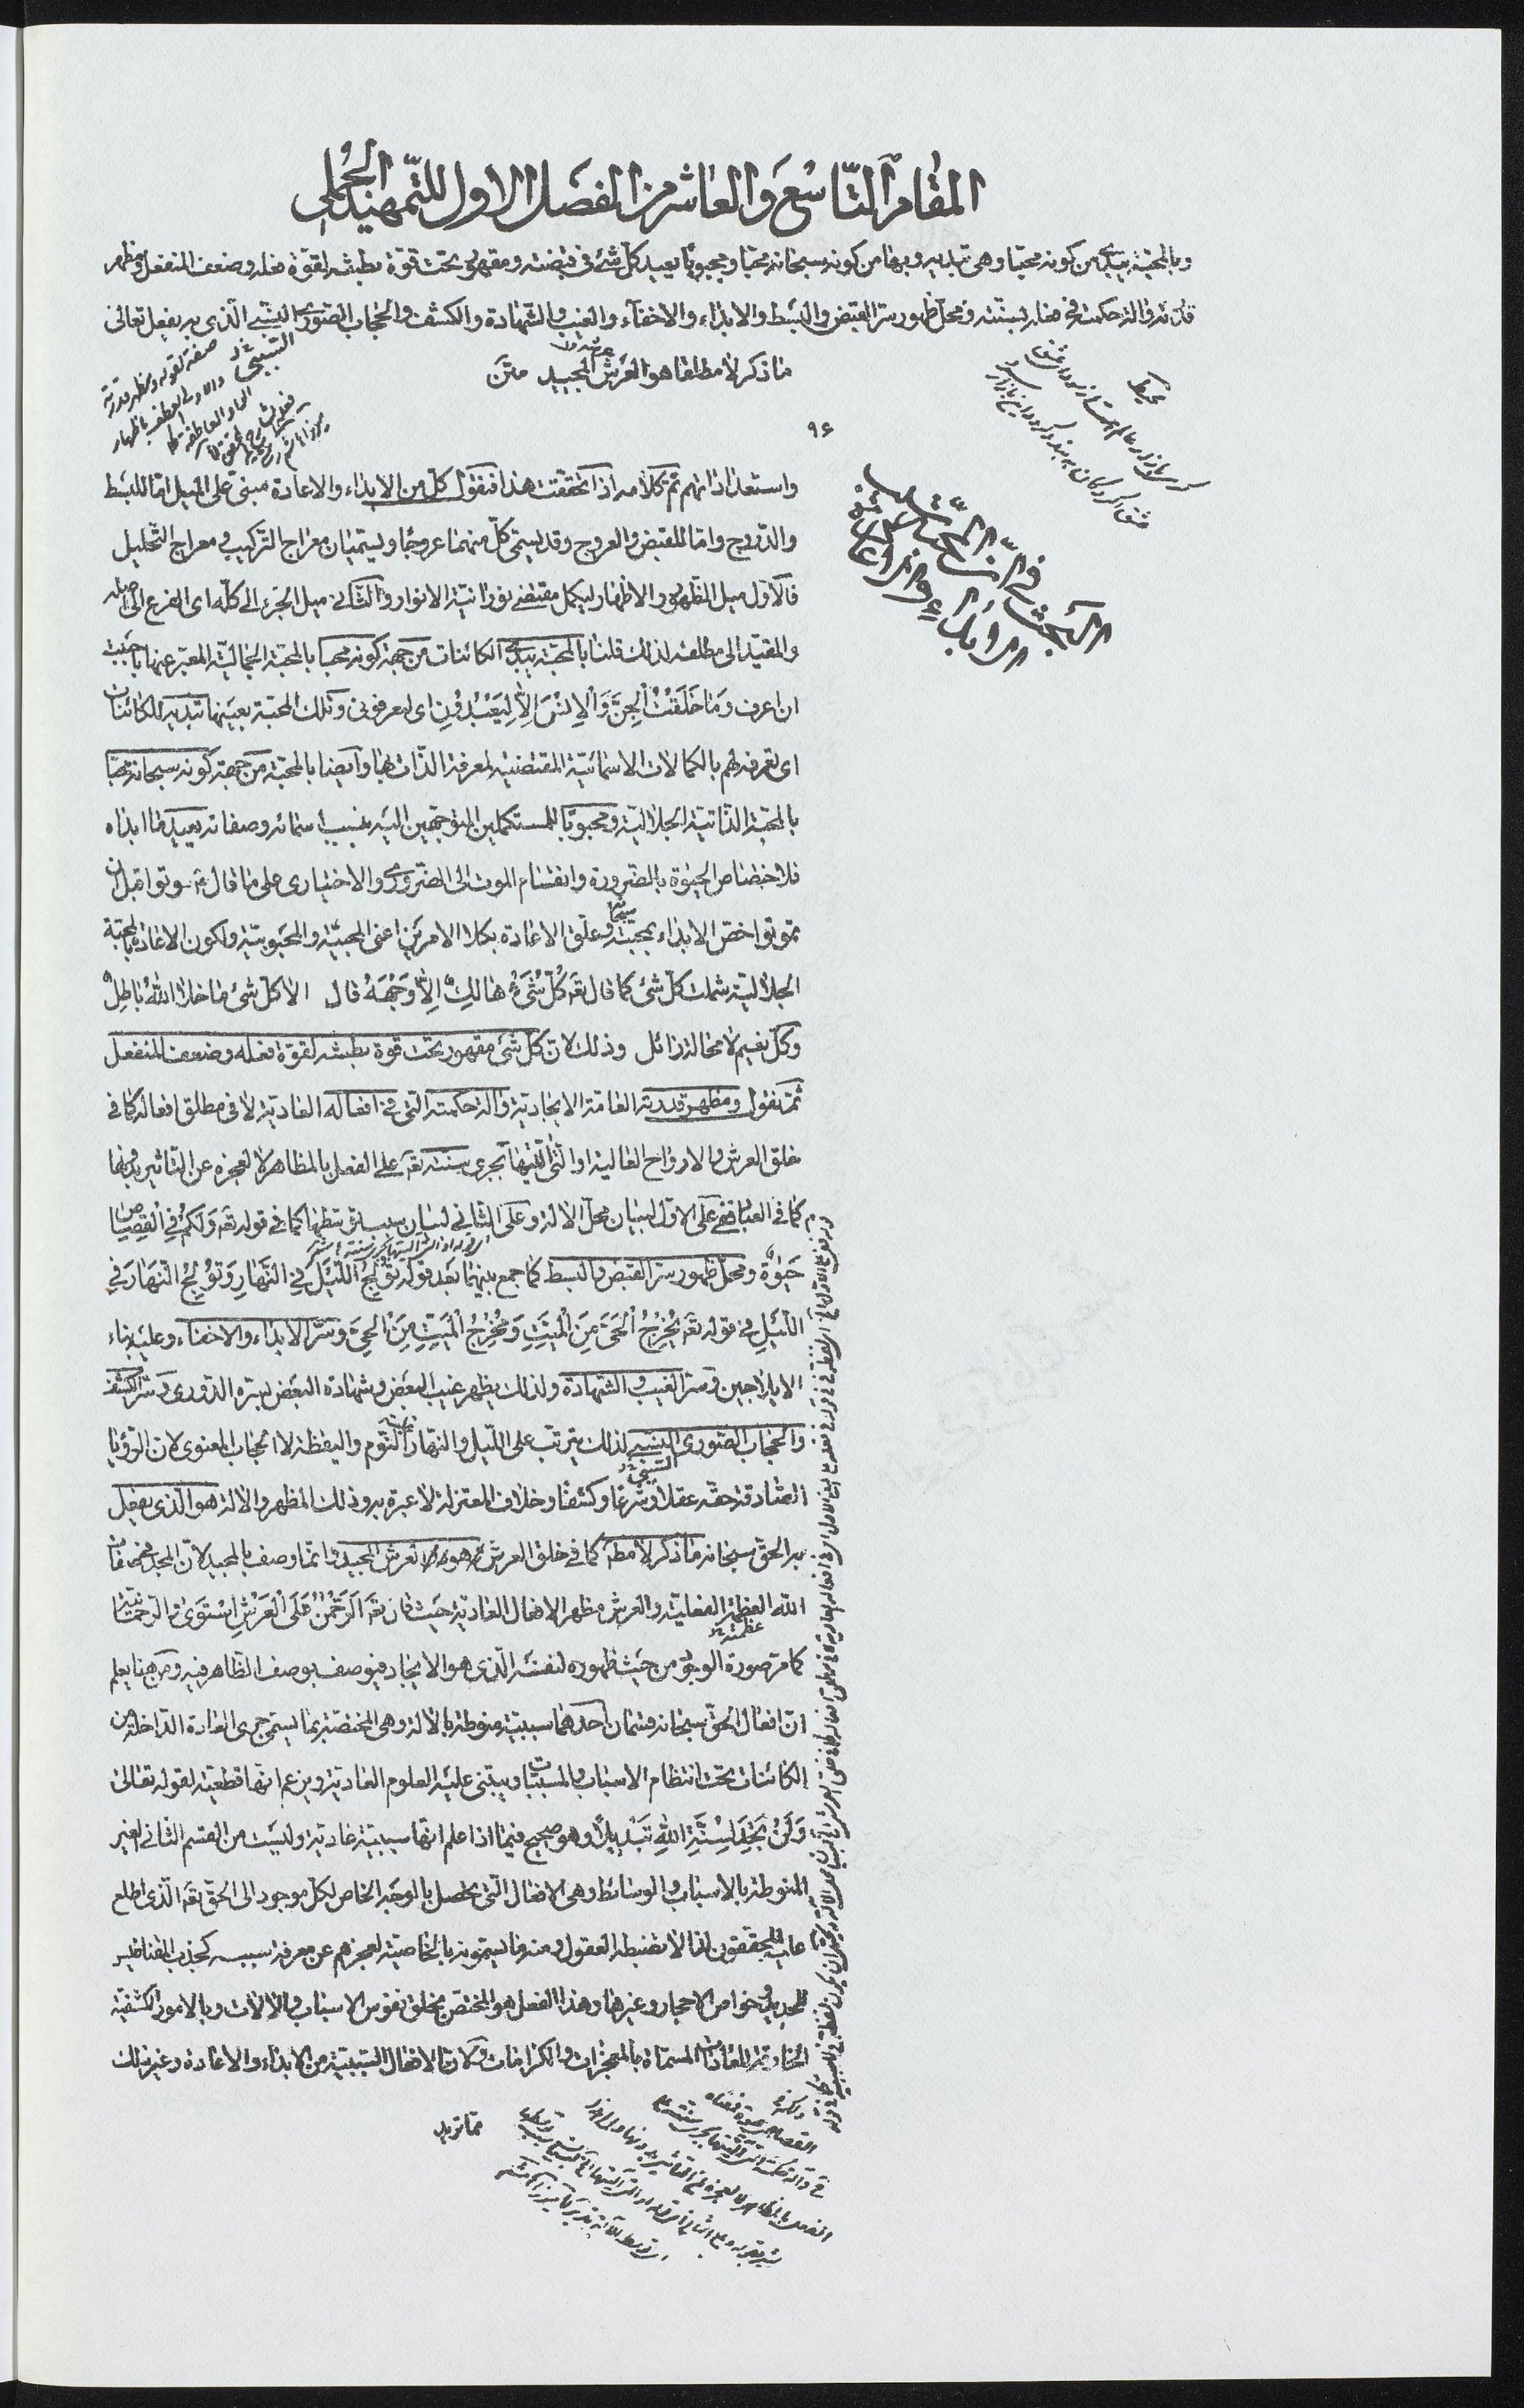 المقام التاسع والعاشر من الفصل الاول للتمهيد الجملي
وبالمحبة يبدئ من كونه محبا وهي تبديه وبها من كونه سبحانه محبا ومحبوبا يعيد كل شئ في قبضته ومقهور تحت قوة بطشه لقوة فعله وضعف المنفعل ومظهر
قدرته وآلة حكمته في فعله بسنته ومحل ظهور سر القبض والبسط والابداء والاخفاء والغيب والشهادة والكشف والحجاب الصوري النسبي الذي به يفعل تعالى
ما ذكر لا مطلقا هو العرش المجيد متن
٩٤
البحث في ان المحبة
الابداء والاعادة
واستعداداتهم تم كلامه اذا تحققت هذا فنقول كل من الابداء والاعادة مبني على الميل اما للبسط
والدروج واما للقبض والعروج وقد يسمى كل منهما عروجا ويسميان معراج التركيب ومعراج التحليل
فالاول ميل الظهور والاظهار ليكمل مقتضى نورانية الانوار والثاني ميل الجزء الى كله اي الفرع الى اصله
والمقيد الى مطلقه لذلك قلنا بالمحبة يبدئ الكائنات من جهة كونه محبا بالمحبة الجمالية المعبر عنها باحببت
ان اعرف وَمَا خَلَقْتُ الْجِنَّ وَالْاِنْسَ اِلَّا لِيَعْبُدُونِ اي ليعرفوني وتلك المحبة بعينها تبديه للكائنات
اي تعرفه لهم بالكمالات الاسمائية المقتضية لمعرفة الذات بها وايضا بالمحبة من جهة كونه سبحانه محبا
بالمحبة الذاتية الجلالية ومحبوبا للمستكملين المتوجهين اليه بنسب اسمائه وصفاته يعيد ما ابداه
فلاختصاص الحيوة بالضرورة وانقسام الموت الى الضروري والاختياري على ما قال موتوا قبل ان
تموتوا اختص الابداء بمحبته وعلق الاعادة بكلا الامرين اعني المحبية والمحبوبية ولكون الاعادة بالمحبة
الجلالية شملت كل شئ كما قال تعه كُلُّ شَيْءٍ هَالِكٌ اِلَّا وَجْهَهُ قال الا كل شئ ما خلا الله باطل
وكل نعيم لا محالة زائل وذلك لان كل شئ مقهور تحت قوة بطشه لقوة فعله وضعف المنفعل
ثم نقول ومظهر قدرته العامة الايجادية وآلة حكمته التي في افعاله العادية لا في مطلق افعاله كما في
خلق العرش والارواح العالية او التي آليتها تجري سنته تعه على الفعل بالمظاهر لا لعجزه عن التاثير بدونها
كما في العباد ففي على الاول لبيان محل الآلة وعلى الثاني لبيان سببية كما في قوله تعه وَلَكُمْ فِي الْقِصَاصِ
حَيٰوةٌ ومحل ظهور سر القبض والبسط كما جمع بينهما بعد قوله تُولِجُ اللَّيْلَ فِي النَّهَارِ وَتُولِجُ النَّهَارَ فِي
اللَّيْلِ في قوله تعه يُخْرِجُ الْحَيَّ مِنَ الْمَيِّتِ وَمُخْرِجُ الْمَيِّتِ مِنَ الْحَيِّ وسر الابداء والاخفاء وعليه بناء
الايلاجين وسر الغيب والشهادة ولذلك يظهر غيب البعض وشهادة البعض بسيره الدوري وسر الكشف
والحجاب الصوري النسبي لذلك يترتب على الليل والنهار النوم واليقظة لا الحجاب المعنوي لان الرؤيا
الصادقة حقة عقلا وشرعا وكشفا وخلاف المعتزلة لا عبرة به وذلك المظهر والآلة هو الذي يفعل
به الحق سبحانه ما ذكر لا مطه كما في خلق العرش هو العرش المجيد وانما وصف بالمجيد لان المجد من صفات
الله العظمة الفعلية والعرش مظهر الافعال العادية حيث قال تعه اَلرَّحْمٰنُ عَلَى الْعَرْشِ اسْتَوٰى والرحمانية
كما مر صورة الوجود من حيث ظهوره لنفسه الذي هو الايجاد فيوصف بوصف الظاهر فيه ومن هنا يعلم
ان افعال الحق سبحانه قسمان احدهما سببية منوطة بالآلة وهي المختصة بما يسمى جري العادة الداخلة من
الكائنات تحت انتظام الاسباب والمسببات ويبتني عليه العلوم العادية ويزعم انها قطعية لقوله تعالى
وَلَنْ تَجِدَ لِسُنَّةِ اللهِ تَبْدِيلًا وهو صحيح فيما اذا علم انها سببية عادية وليست من القسم الثاني الغير
المنوطة بالاسباب والوسائط وهي الافعال التي تحصل بالوجه الخاص لكل موجود الى الحق تعه الذي اطلع
عليه المحققون لما لا تضبطه العقول ومنه ما يسمونه بالخاصية لعجزهم عن معرفة سببه كجذب المقناطيس
للحديد وخواص الاحجار وغيرها وهذا الفعل هو المختص بخلق نفوس الاسباب والآلات وبالامور الكشفية
الخارقة للعادات المسماة بالمعجزات والكرامات وكان الافعال السببية من الابداء والاعادة وغير ذلك
مما تريد